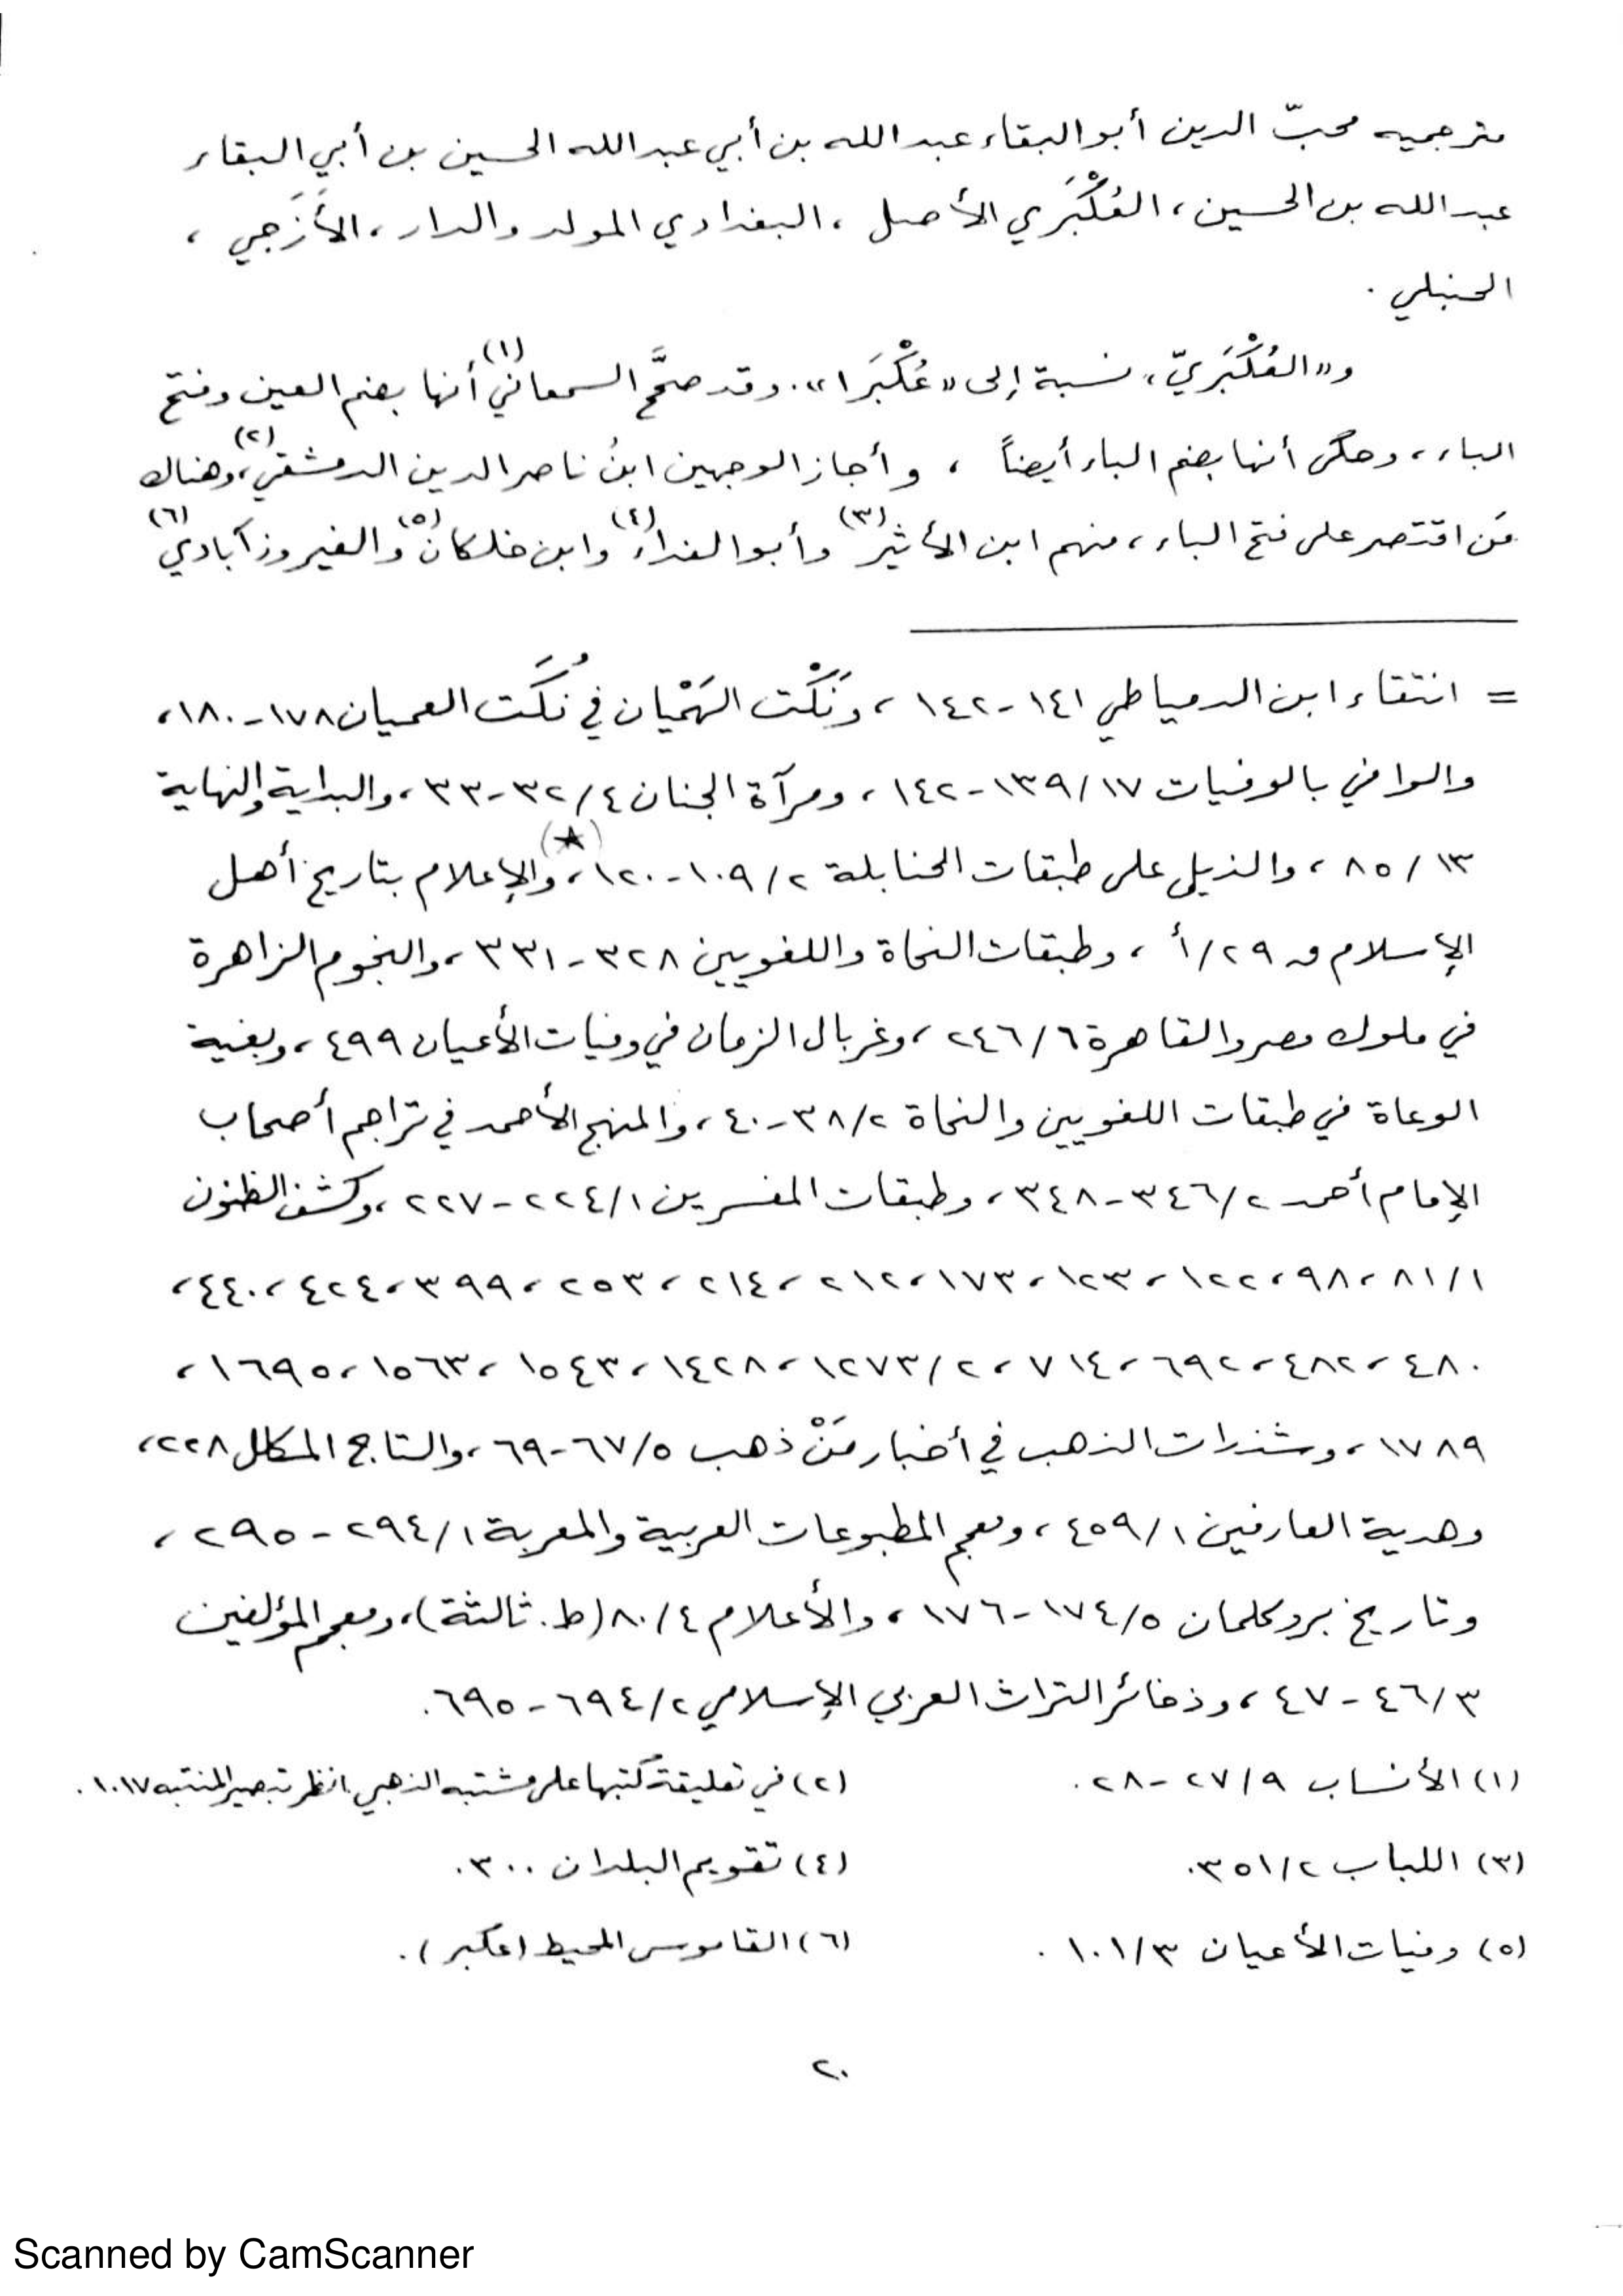 مترجميه محبّ الدين أبو البقاء عبد الله بن أبي عبد الله الحسين بن أبي البقاء
عبد الله بن الحسين، العُكْبَري الأصل، البغدادي المولد والدار، الأَزَجي،
الحنبلي.
و«العُكْبَريّ» نسبة إلى «عُكْبَرا». وقد صحَّح السمعاني(١) أنها بضم العين وفتح
الباء، وحكى أنها بضم الباء أيضاً، وأجاز الوجهين ابنُ ناصر الدين الدمشقي(٢)، وهناك
مَن اقتصر على فتح الباء، منهم ابن الأثير(٣) وأبو الفداء(٤) وابن خلكان(٥) والفيروزآبادي(٦)
= انتقاء ابن الدمياطي ١٤١-١٤٢، ونَكْت الهَمْيان في نُكَت العميان ١٧٨-١٨٠،
والوافي بالوفيات ١٣٩/١٧-١٤٢، ومرآة الجنان ٣٢/٤-٣٣، والبداية والنهاية
٨٥/١٣، والذيل على طبقات الحنابلة ١٠٩/٢-١٢٠،(★) والإعلام بتاريخ أهل
الإسلام ق ٢٩/أ، وطبقات النحاة واللغويين ٣٢٨-٣٣١، والنجوم الزاهرة
في ملوك مصر والقاهرة ٢٤٦/٦، وغربال الزمان في وفيات الأعيان ٤٩٩، وبغية
الوعاة في طبقات اللغويين والنحاة ٣٨/٢-٤٠، والمنهج الأحمد في تراجم أصحاب
الإمام أحمد ٣٤٦/٢-٣٤٨، وطبقات المفسرين ٢٢٤/١-٢٢٧، وكشف الظنون
٨١/١، ٩٨، ١٢٢، ١٢٣، ١٧٣، ٢١٢، ٢١٤، ٢٥٣، ٣٩٩، ٤٢٤، ٤٤٠،
٤٨٠، ٤٨٢، ٦٩٢، ٧١٤، ١٢٧٣/٢، ١٤٢٨، ١٥٤٣، ١٥٦٣، ١٦٩٥،
١٧٨٩، وشذرات الذهب في أخبار مَنْ ذهب ٦٧/٥-٦٩، والتاج المكلل ٢٢٨،
وهدية العارفين ٤٥٩/١، ومعجم المطبوعات العربية والمعربة ٢٩٤/١-٢٩٥،
وتاريخ بروكلمان ١٧٤/٥-١٧٦، والأعلام ٨٠/٤ (ط. ثالثة)، ومعجم المؤلفين
٤٦/٣-٤٧، وذخائر التراث العربي الإسلامي ٦٩٤/٢-٦٩٥.
(١) الأنساب ٢٧/٩-٢٨. (٢) في تعليقة كتبها على مشتبه الذهبي. انظر تبصير المنتبه ١٠١٧.
(٣) اللباب ٣٥١/٢. (٤) تقويم البلدان ٣٠٠.
(٥) وفيات الأعيان ١٠١/٣. (٦) القاموس المحيط (عكبر).
٢٠
Scanned by CamScanner